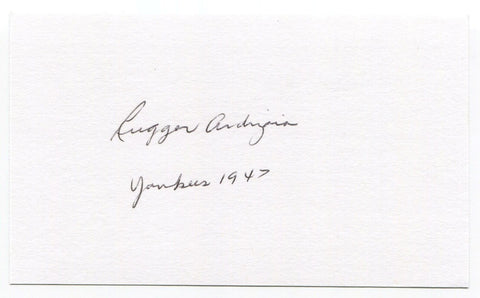 Rugger Ardizoia
Yankees 1947